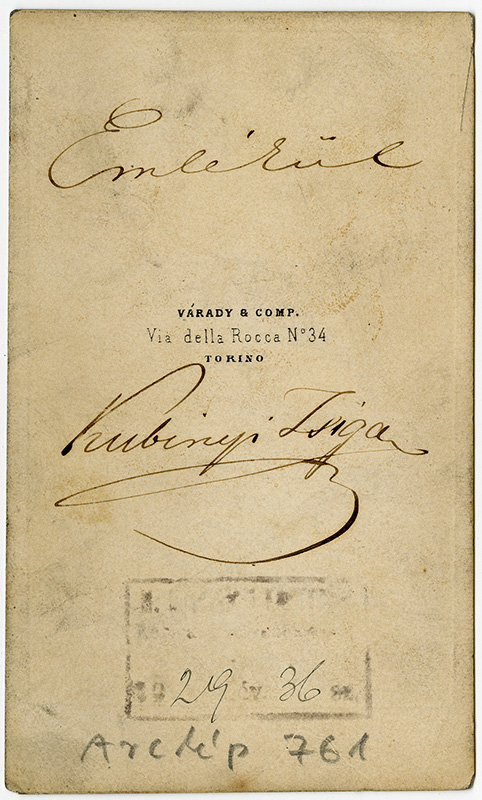 Emlékül
VÁRADY & COMP.
Via della Rocca N° 34
TORINO
Kubinyi Zsiga
29 36
Arckép 761